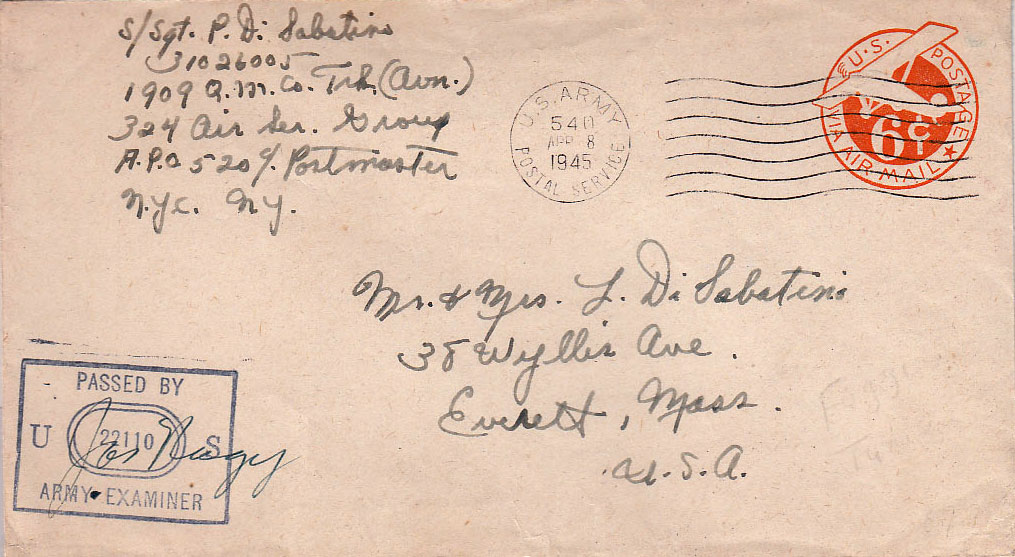 S/Sgt. P. Di Sabatino
31026005
1909 Q.M. Co. Trk (Avn.)
324 Air Ser. Group
A.P.O 520 c/o Postmaster
N.Y.C. N.Y.
U.S. ARMY
540
APR 8
1945
POSTAL SERVICE
U.S. POSTAGE
6¢
VIA AIR MAIL
Mr. & Mrs. L. Di Sabatino
38 Wyllis Ave.
Everett, Mass.
U.S.A.
PASSED BY
U 22110 S
ARMY EXAMINER